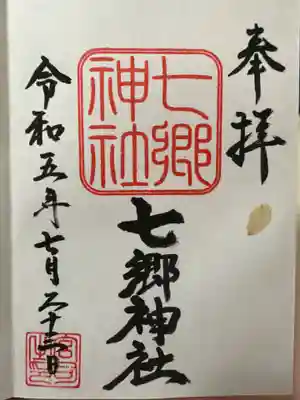 奉拝
七郷
神社
七郷神社
令和五年七月二十三日